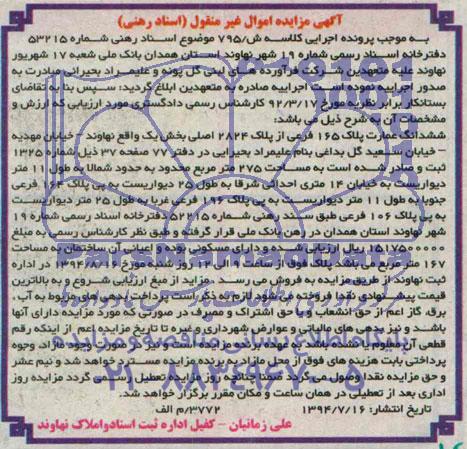 آگهی مزایده اموال غیر منقول (اسناد رهنی)
به موجب پرونده اجرایی کلاسه ش/۷۹۵ موضوع اسناد رهنی شماره ۵۳۲۱۵
دفترخانه اسناد رسمی شماره ۱۹ شهر نهاوند استان همدان بانک ملی شعبه ۱۷ شهریور
نهاوند علیه متعهدین شرکت فرآورده های لبنی گل پونه و علیمراد بحیرایی مبادرت به
صدور اجراییه نموده است اجراییه صادره به متعهدین ابلاغ گردید: سپس بنا به تقاضای
بستانکار برابر نظریه مورخ ۹۲/۳/۱۷ کارشناس رسمی دادگستری مورد ارزیابی که ارزش و
مشخصات آن به شرح ذیل می باشد:
ششدانگ عمارت پلاک ۱۶۵ فرعی از پلاک ۲۸۲۴ اصلی بخش یک واقع نهاوند - خیابان مهدیه
- خیابان شهید گل بداغی بنام علیمراد بحیرایی در دفتر ۷۷ صفحه ۳۷ ذیل شماره ۱۳۲۵
ثبت و صادر شده است به مساحت ۲۷۵ متر مربع محدود به حدود شمالا به طول ۱۱ متر
دیواریست به خیابان ۱۲ متری احداثی شرقا به طول ۲۵ دیواریست به پی پلاک ۱۶۴ فرعی
جنوبا به طول ۱۱ متر دیواریست به پی پلاک ۱۹۶ فرعی غربا به طول ۲۵ متر دیواریست
به پی پلاک ۱۰۶ فرعی طبق سند رهنی شماره ۵۲۲۱۵ دفترخانه اسناد رسمی شماره ۱۹
شهر نهاوند استان همدان در رهن بانک ملی قرار گرفته و طبق نظر کارشناس رسمی به مبلغ
ریال ارزیابی شده و دارای مسکونی بوده و اعیانی آن ساختمان به مساحت
۱۶۷ متر مربع می باشد پلاک فوق از ساعت ۹ الی ۱۲ روز شنبه مورخ ۱۳۹۴/۸/۱۶ در اداره
ثبت نهاوند از طریق مزایده به فروش می رسد. مزاید از مبلغ ارزیابی شروع و به بالاترین
قیمت پیشنهادی نقدا فروخته می شود لازم به ذکر است پرداخت بدهی های مربوط به آب،
برق، گاز اعم از حق انشعاب و یا حق اشتراک و مصرف در صورتی که مورد مزایده دارای آنها
باشد و نیز بدهی های مالیاتی و عوارض شهرداری و غیره تا تاریخ مزایده اعم از اینکه رقم
قطعی آن معلوم یا نشده باشد به عهده برنده مزایده است و نیز در صورت وجود مازاد وجوه
پرداختی بابت هزینه های فوق از محل مازاد به برنده مزایده مسترد خواهد شد و نیم عشر
و حق مزایده نقدا وصول می گردد ضمنا چنانچه روز مزایده تعطیل رسمی گردد مزایده روز
اداری بعد از تعطیلی در همان ساعت و مکان مقرر برگزار خواهد شد.
تاریخ انتشار: ۱۳۹۴/۷/۱۶ ۳۷۷۲/م الف
علی زمانیان - کفیل اداره ثبت اسناد و املاک نهاوند
ParsNamadData